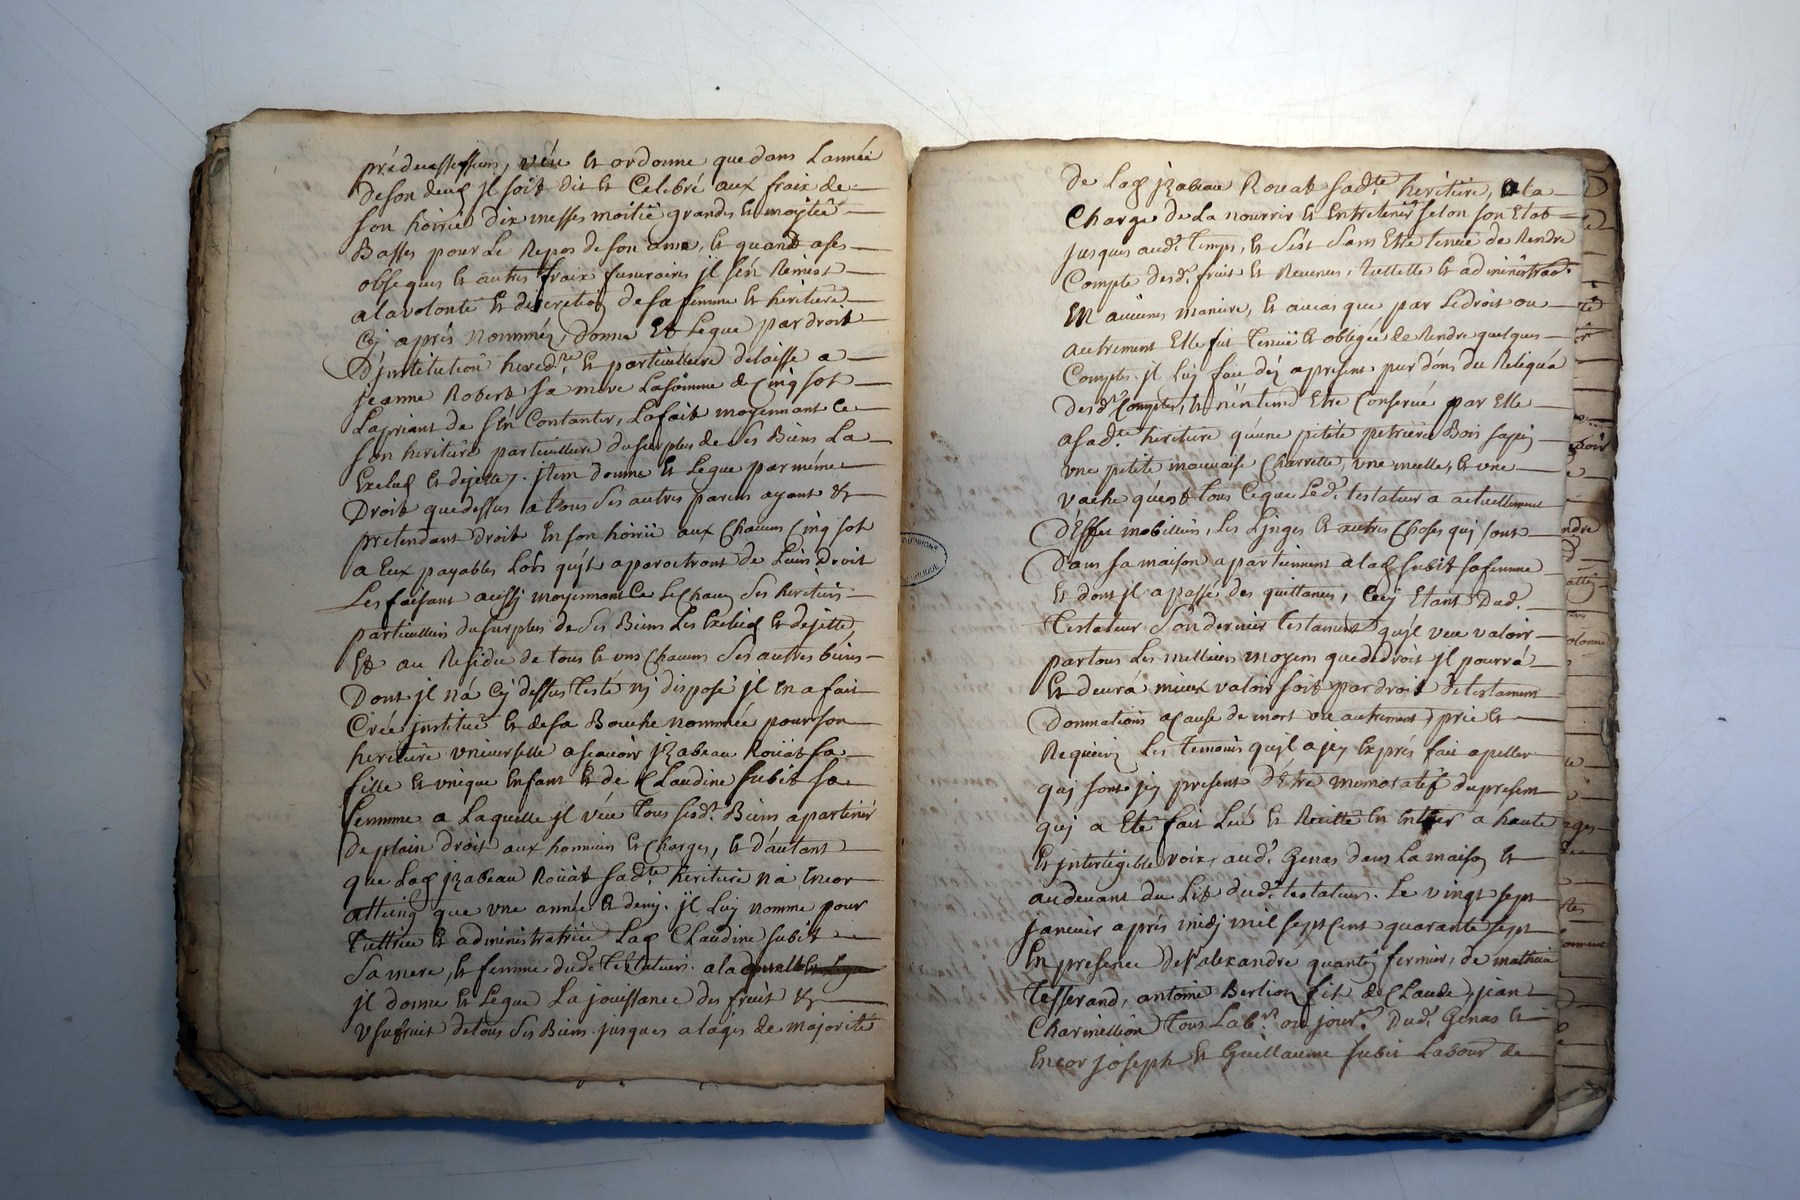 prédecesseurs, véu et ordonne que dans l'année
de son deug jl soit dit et Celebré aux fraix de
son hoirie dix messes moitié grandes et moytié
Basses pour le Repos de son ame, et quand a ses
obseques et autres fraix funeraires jl s'en Remest
a la volonté et discretion de sa femme et heritiere
Cy aprés Nommée, donne Et legue par droit
D'jnstitution hered.re et particulliere delaisse a
jeanne Robert sa mere La somme de Cinq sol
La priant de s'en Contanter, La fait moyennant ce
son heritiere particulliere du surplus de ses Biens La
Exclud et dejette. jtem donne et Legue par méme
Droit que dessus a tous ses autres parens ayant &
pretendant droit En son hoirie aux Chacuns Cinq sol
a Eux payables Lors qu'jls aparoctront de Leurs droit
Les faisant aussy moyennant Ce Le Chacun ses heritiers
particulliers du surplus de ses Biens Les Exclud et dejette,
Et au Residu de tous et uns Chacuns ses autres biens
Dont jl n'a Cy dessus testé nj disposé jl en a fait
Créé jnstitué et de sa Bouche nommée pour son
heritiere vniverselle a scavoir jzabeau Roüat sa
fille et vnique enfant et de Claudine subit sa
femme a Laquelle jl véu tous sesd.t Biens apartenir
de plain droit aux honneurs et Charges, et d'autant
que Lad jzabeau Roüat sad.te heritiere n'a encor
atteing que vne année et demy. jl Luy nomme pour
tuttrice et administratrice Lad Claudine subit
sa mere, et femme dud. testateur. a la
jl donne et Legue La jouissance des fruit &
Vsufruit de tous ses Biens jusques a l'ages de majorité
de Lad jzabeau Roüat sad.te heritiere, a la
Charge de La nourrir et Entretenir selon son Etat
jusques aud.t temps, et C'est sans Etre tenue de Rendre
Compte desd.t fruit et Revenus, tuttelle et administraon
en aucunes maniere, et au cas que par Le droit ou
autrement Elle fut tenue et obligée de Rendre quelques
Comptes. jl Luy fait dez apresent pur don du Reliqua
desd.t Comptes, et n'entend Etre Conservé par Elle
a sad.te heritiere qu'une petite petriere Bois sapin
vne petite mauvaise Charrette, vne melle, et vne
vache qu'est tous Ce que Led.t testateur a actuellement
d'Effet mobiliers, Les Linges et autres Choses qui sont
Dans sa maison apartiennent a lad subit sa femme
et dont jl a passé des quittances, Cecy Etant Dud.
testateur son dernier testament qu'jl veu valoir
par tous Les meillieurs moyens que de droit jl pourra
Et devra mieux valoir soit par droit de testament
donnations a Cause de mort ou autrement, prie et
Requiers Les temoins qu'jl a jcy Exprés fait apeller
qui sont jcy present d'Etre memoratif du present
qui a Eté fait Leü et Recitté en Entier a haute
Et jntelligible voix, aud.t Genas dans La maison et
au devant du Lit dud.t testateur. Le vingt sept
janvier aprés midj mil sept Cent quarante sept
En presence de s.r alexandre quantin fermier, de mathieu
tesserand, antoine Berlion fils de Claude, jean
Charmellion tous Lab.rs ou jour.s Dud.t Genas et
encor joseph et Guillaume subit Labour de